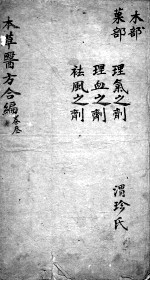 木部
菓部
理氣之劑
理血之劑
祛風之劑
渭珍氏
本草醫方合編 卷叁